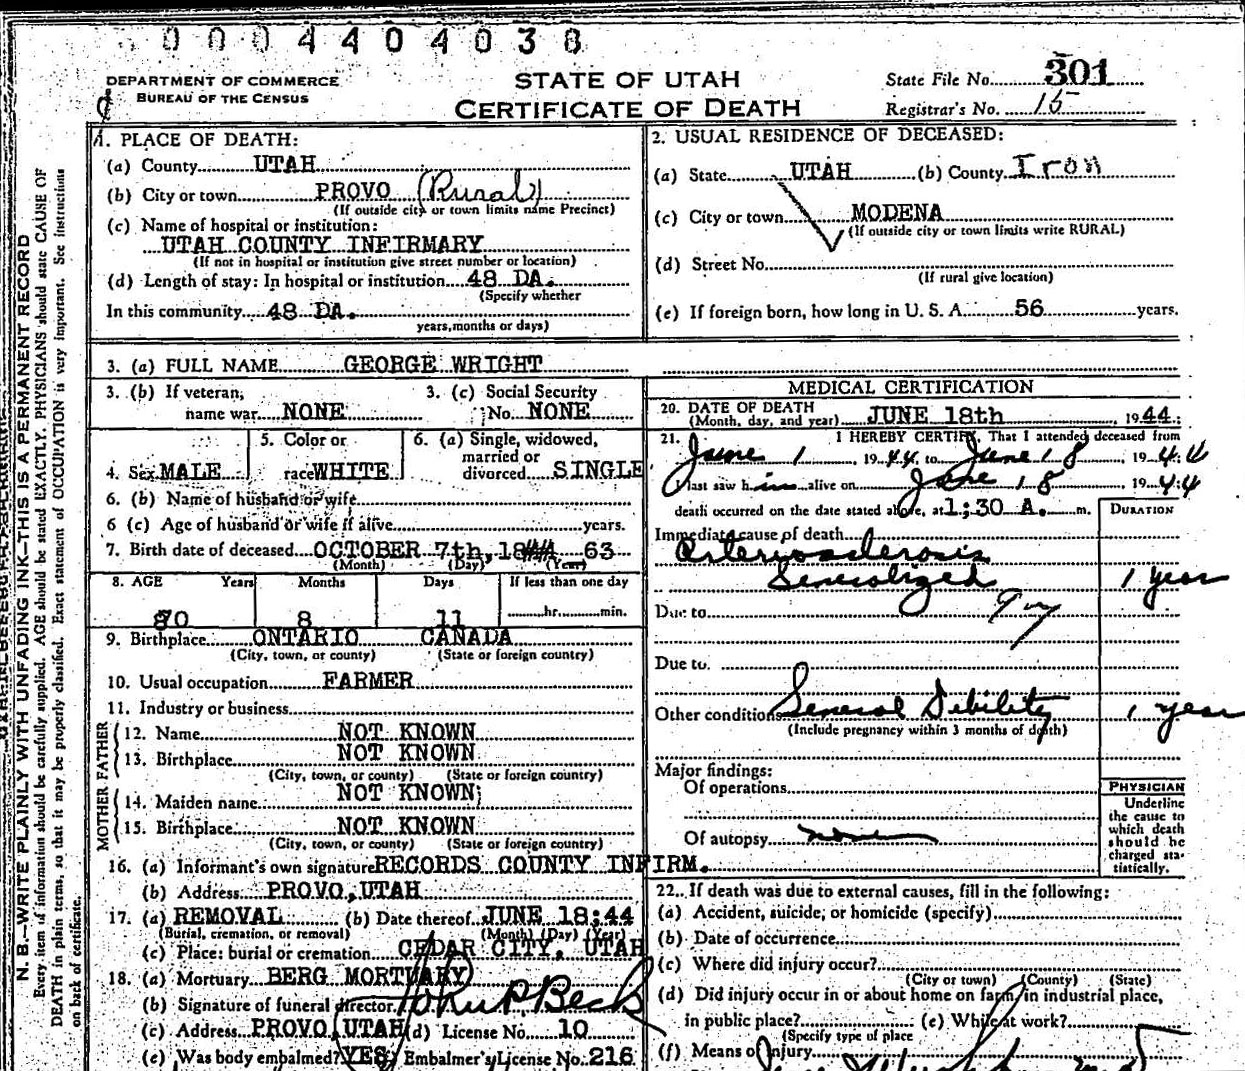 0004404038
DEPARTMENT OF COMMERCE
BUREAU OF THE CENSUS
STATE OF UTAH
CERTIFICATE OF DEATH
State File No. 301
Registrar's No. 15
1. PLACE OF DEATH:
(a) County UTAH
(b) City or town PROVO (Rural)
(If outside city or town limits name Precinct)
(c) Name of hospital or institution:
UTAH COUNTY INFIRMARY
(If not in hospital or institution give street number or location)
(d) Length of stay: In hospital or institution 48 DA.
(Specify whether
In this community 48 DA.
years, months or days)
2. USUAL RESIDENCE OF DECEASED:
(a) State UTAH (b) County Iron
(c) City or town MODENA
(If outside city or town limits write RURAL)
(d) Street No.
(If rural give location)
(e) If foreign born, how long in U. S. A. 56 years.
3. (a) FULL NAME GEORGE WRIGHT
3. (b) If veteran, name war NONE
3. (c) Social Security No. NONE
4. Sex MALE
5. Color or race WHITE
6. (a) Single, widowed, married or divorced SINGLE
6. (b) Name of husband or wife
6 (c) Age of husband or wife if alive years.
7. Birth date of deceased OCTOBER 7th, 18 63
(Month) (Day) (Year)
8. AGE Years Months Days If less than one day
80 8 11 hr. min.
9. Birthplace ONTARIO CANADA
(City, town, or county) (State or foreign country)
10. Usual occupation FARMER
11. Industry or business
FATHER
12. Name NOT KNOWN
13. Birthplace NOT KNOWN
(City, town, or county) (State or foreign country)
MOTHER
14. Maiden name NOT KNOWN
15. Birthplace NOT KNOWN
(City, town, or county) (State or foreign country)
16. (a) Informant's own signature RECORDS COUNTY INFIRM.
(b) Address PROVO, UTAH
17. (a) REMOVAL (b) Date thereof JUNE 18:44
(Burial, cremation, or removal) (Month) (Day) (Year)
(c) Place: burial or cremation CEDAR CITY, UTAH
18. (a) Mortuary BERG MORTUARY
(b) Signature of funeral director
(c) Address PROVO, UTAH (d) License No. 10
(e) Was body embalmed? YES Embalmer's License No. 216
MEDICAL CERTIFICATION
20. DATE OF DEATH
(Month, day, and year) JUNE 18th 1944
21. I HEREBY CERTIFY, That I attended deceased from
June 1, 1944 to June 18 1944
I last saw him alive on June 18 1944
death occurred on the date stated above, at 1:30 A. m.
DURATION
Immediate cause of death
Arteriosclerosis
Generalized 1 year
Due to
Due to
Other conditions General Debility 1 year
(Include pregnancy within 3 months of death)
Major findings:
Of operations
Of autopsy none
PHYSICIAN
Underline
the cause to
which death
should be
charged sta-
tistically.
22. If death was due to external causes, fill in the following:
(a) Accident, suicide, or homicide (specify)
(b) Date of occurrence
(c) Where did injury occur?
(City or town) (County) (State)
(d) Did injury occur in or about home on farm, in industrial place,
in public place? (e) While at work?
(Specify type of place
(f) Means of injury
N. B.—WRITE PLAINLY WITH UNFADING INK—THIS IS A PERMANENT RECORD
Every item of information should be carefully supplied. AGE should be stated EXACTLY. PHYSICIANS should state CAUSE OF
DEATH in plain terms, so that it may be properly classified. Exact statement of OCCUPATION is very important. See instructions
on back of certificate.